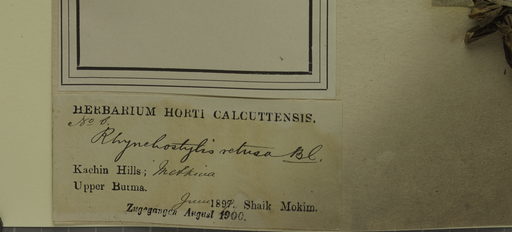 HERBARIUM HORTI CALCUTTENSIS.
No 6.
Rhynchostylis retusa Bl.
Kachin Hills;
Upper Burma.
June 1897. Shaik Mokim.
Zugegangen August 1900.